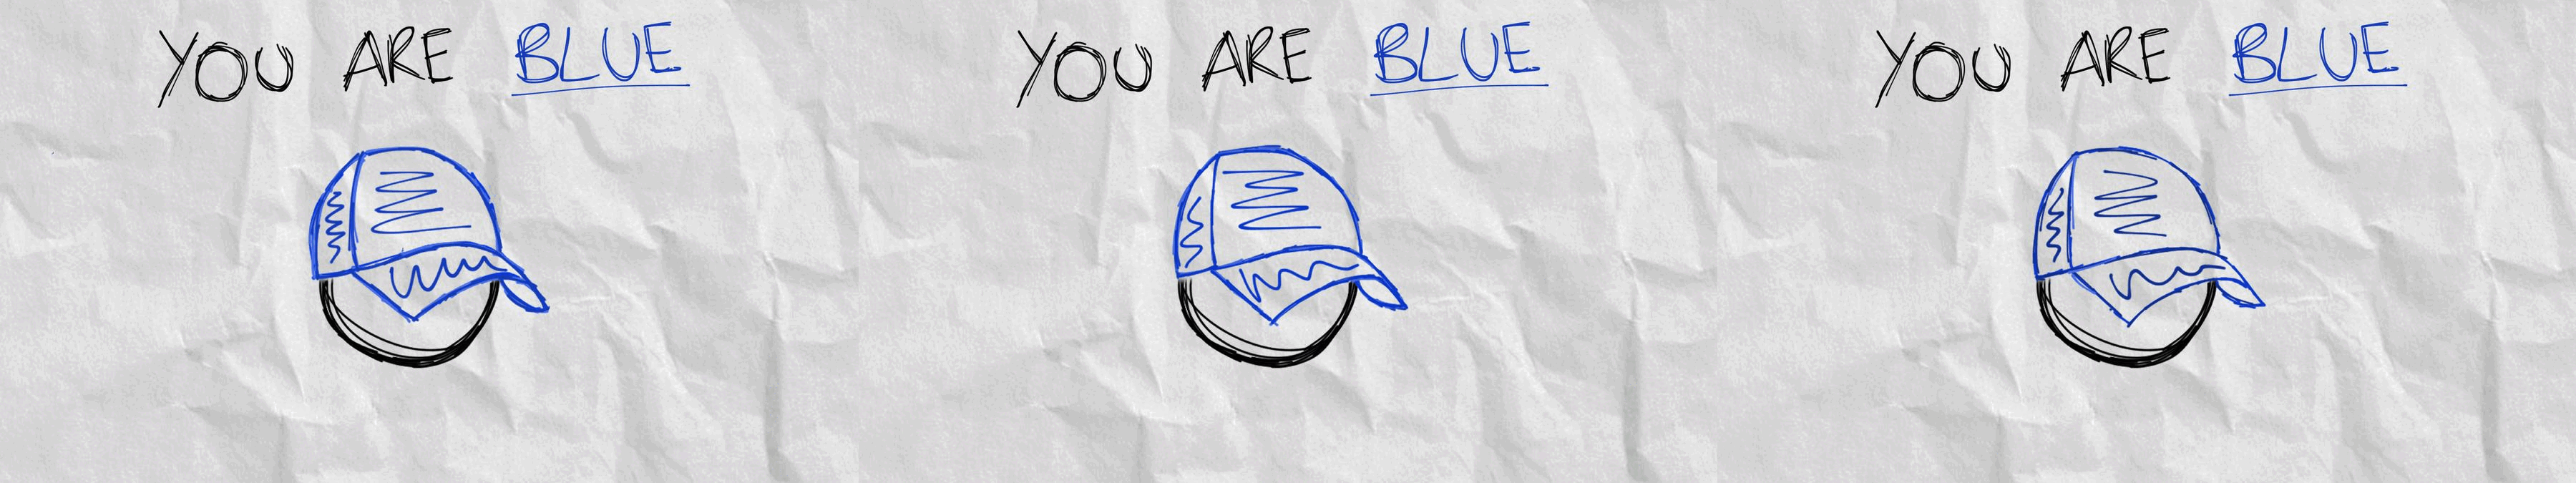 YOU ARE BLUE YOU ARE BLUE YOU ARE BLUE